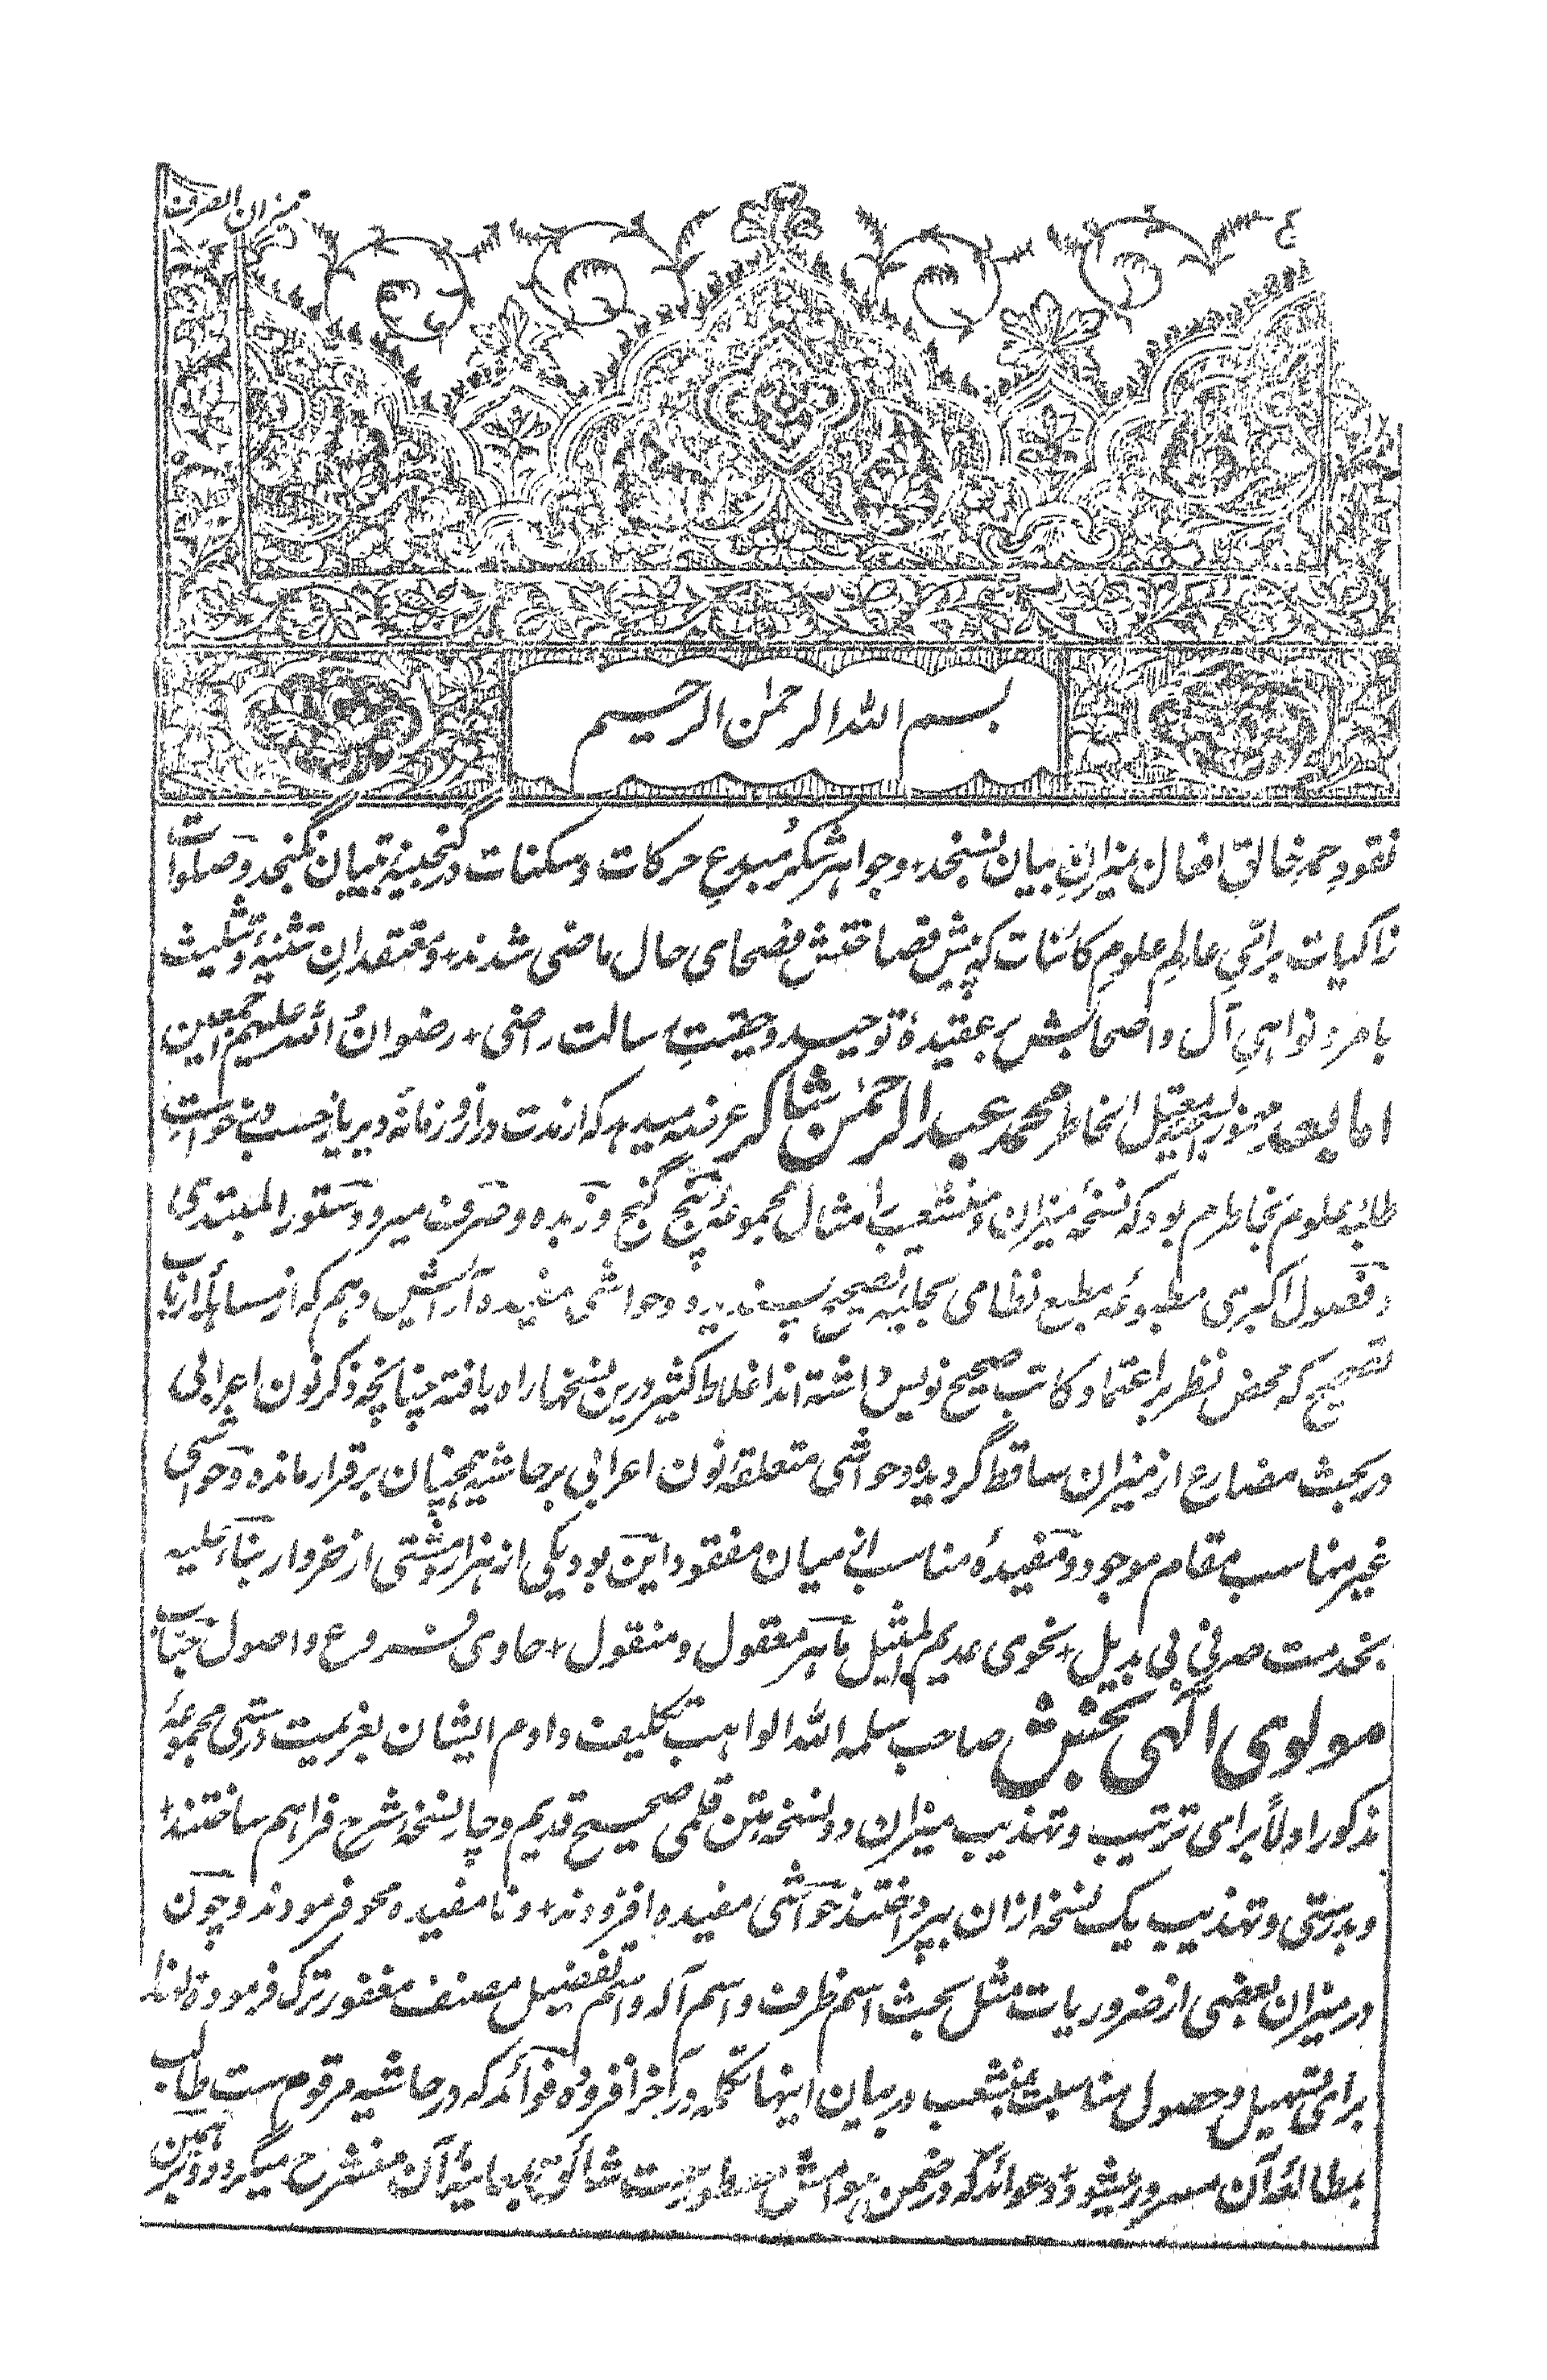 میزان الصرف
بسم الله الرحمٰن الرحیم
نقودِ حمدِ خالقِ افعال بمیزانِ بیان نسنجد + و جواهرِ شکرِ مُبدِعِ حرکات و سکنات در گنجینهٔ تبیان نگنجد و صلوات
زاکیات برآنی عالمِ علومِ کائنات که پیشِ فصاحتش فصحای حال ماضی شدند + و معتقدانِ تثنیه و تثلیث
بامر و نواهیِ آل و اصحابش بر عقیدهٔ توحید و حقیتِ رسالت راضی + رضوانُ الله علیهم اجمعین
اما بعد محمد عبدالرحمٰن شاکر عرضه میدهد که از مدت دراز و زمانهٔ دیریاز حسب درخواستِ
طلبهٔ علوم بخاطرم بود که نسخهٔ میزان و منشعب را مثال مجموعهٔ پنج گنج و زبده و صرف میر و دستور المبتدی
و فصول اکبری مطبوعهٔ مطبع نظامی بحلیهٔ تصحیح پسندیده و حواشی مفیده آرایش دهم که از مساهلهٔ ارباب
تصحیح که محض نظر بر اعتماد کاتب صحیح نویس داشته اند اغلاط کثیر درین نسخها راه یافته چنانچه ذکر نون اعرابی
در بحث مضارع از میزان ساقط گردیده و حواشی متعلقهٔ نون اعرابی بر حاشیه همچنان برقرار مانده و حواشی
غیر مناسب مقام موجود و مفیدهٔ مناسب ازمیان مفقود این بود یکی از هزار و مشتی از خروار بناءً علیه
بخدمت صرفی بی بدیل + نحوی عدیم المثیل ماهر معقول و منقول + حاوی فروع و اصول جناب
مولوی آلهی بخش صاحب سلمه الله الواهب تکلیف دادم ایشان بعزیمت درستی مجموعهٔ
مذکور اولاً برای ترتیب و تهذیب میزان دو نسخه متن قلمی صحیح قدیم و چار نسخه شرح فراهم ساختند +
و بدرستی و تهذیب یک نسخه ازان بپرداختند حواشی مفیده افزودند + و نامفیده محو فرمودند و چون
در میزان بعضی از ضروریات مثل بحث اسم ظرف و اسم آله و اسم تفضیل مصنف مغفور ترک فرموده لهٰذا
برای تسهیل و حصول مناسبت بمنشعب در بیان اینها تکمله در آخر افزوده فوائد که در حاشیه مرقوم ست طالب
بمطالعهٔ آن مسرور میشود و عوائد که در ضمن هوامش مسطورست شائق بمعاینهٔ آن منشرح میگردد و برهمین